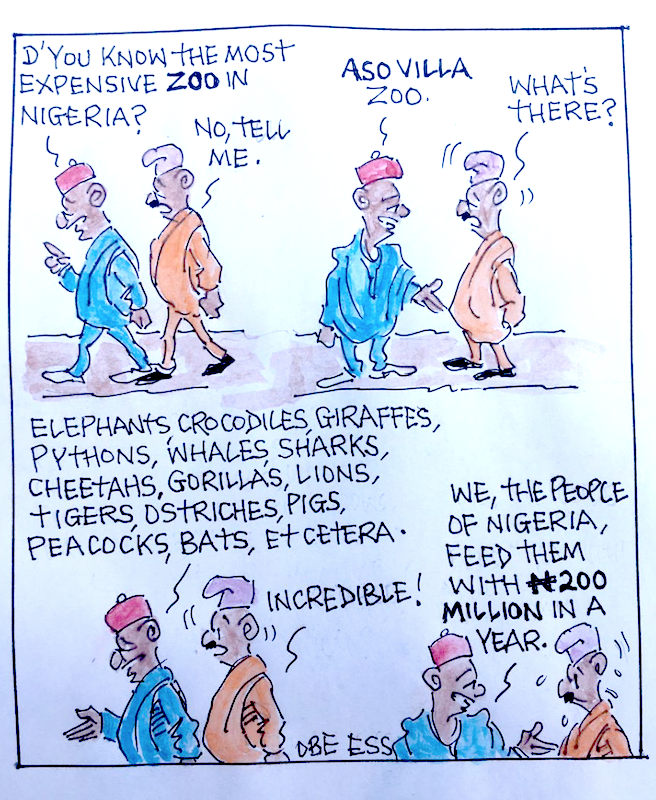 D'YOU KNOW THE MOST
EXPENSIVE ZOO IN
NIGERIA?
NO, TELL
ME.
ASO VILLA
ZOO.
WHAT'S
THERE?
ELEPHANTS, CROCODILES, GIRAFFES,
PYTHONS, WHALES, SHARKS,
CHEETAHS, GORILLAS, LIONS,
TIGERS, OSTRICHES, PIGS,
PEACOCKS, BATS, ET CETERA.
INCREDIBLE!
WE, THE PEOPLE
OF NIGERIA,
FEED THEM
WITH ₦200
MILLION IN A
YEAR.
OBE ESS